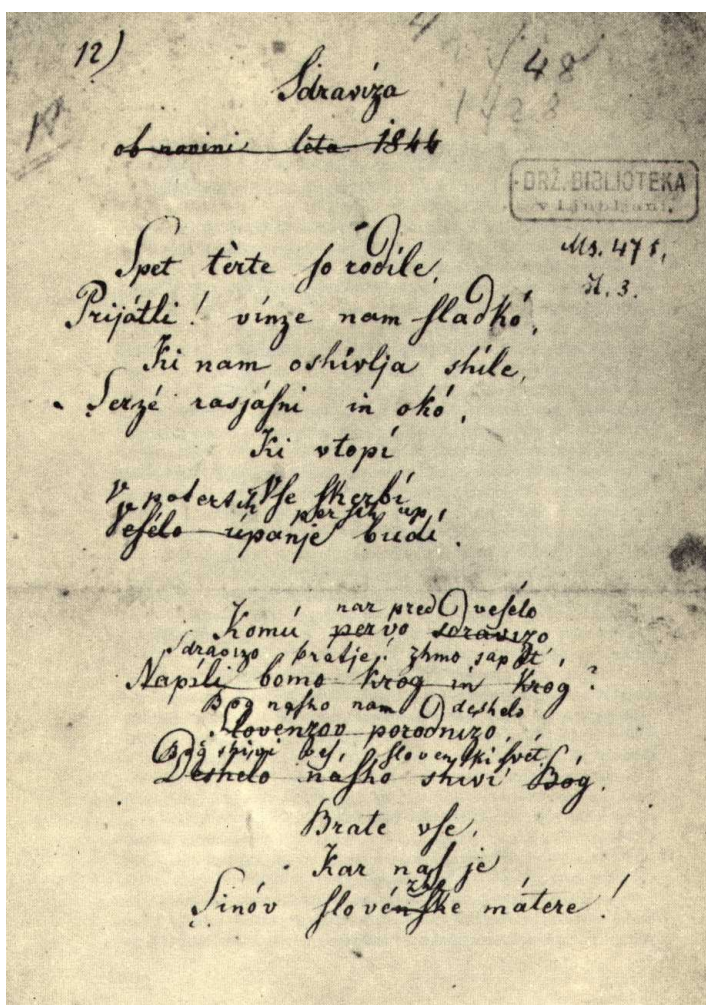 12)
48
1428
Sdravíza
ob novini léta 1844
DRŽ. BIBLIOTEKA
v Ljubljani.
Ms. 471,
št. 3.
Spet tèrte ſo rodíle,
Prijátli! vínze nam ſladkó,
Ki nam oshívlja shíle,
Serzé rasjáſni in okó,
Ki vtopí
Vſe ſkerbí
V potertih perſih up
Veſélo úpanje budí.
nar pred veſélo
Komú pervo sdravizo
Sdravizo bratje! zhmo sapét,
Napíli bomo krog in krog?
Bog naſho nam deshelo
Slovenzov porodnizo,
Bog shivi veſ ſlovenſki ſvét,
Deshelo naſho shiví Bóg.
Brate vſe,
Kar naſ je
zhe
Sinóv ſlovénſke mátere!